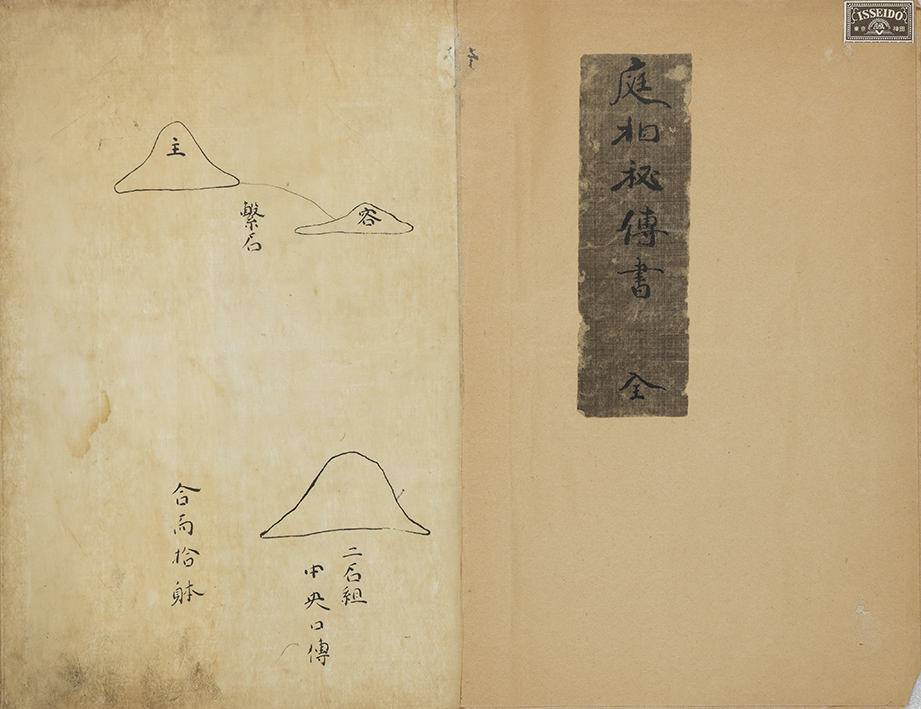 ISSEIDO
東京 神田
庭相秘傳書 全
主
客
繋石
二石組
中央口傳
合而拾躰